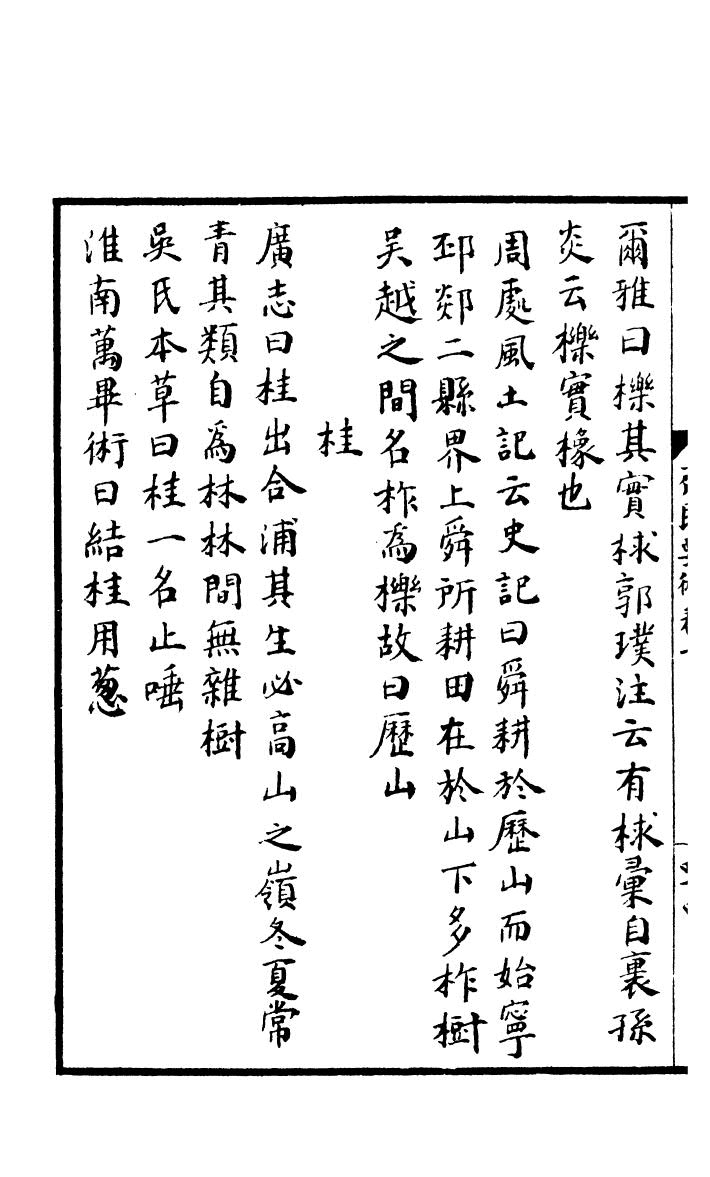 爾雅曰櫟其實梂郭璞注云有梂彚自裹孫
炎云櫟實橡也
周處風土記云史記曰舜耕於歷山而始寧
邳郯二縣界上舜所耕田在於山下多柞樹
吴越之間名柞爲櫟故曰歷山
桂
廣志曰桂出合浦其生必高山之嶺冬夏常
青其類自爲林林間無雜樹
吳氏本草曰桂一名止唾
淮南萬畢術曰結桂用葱